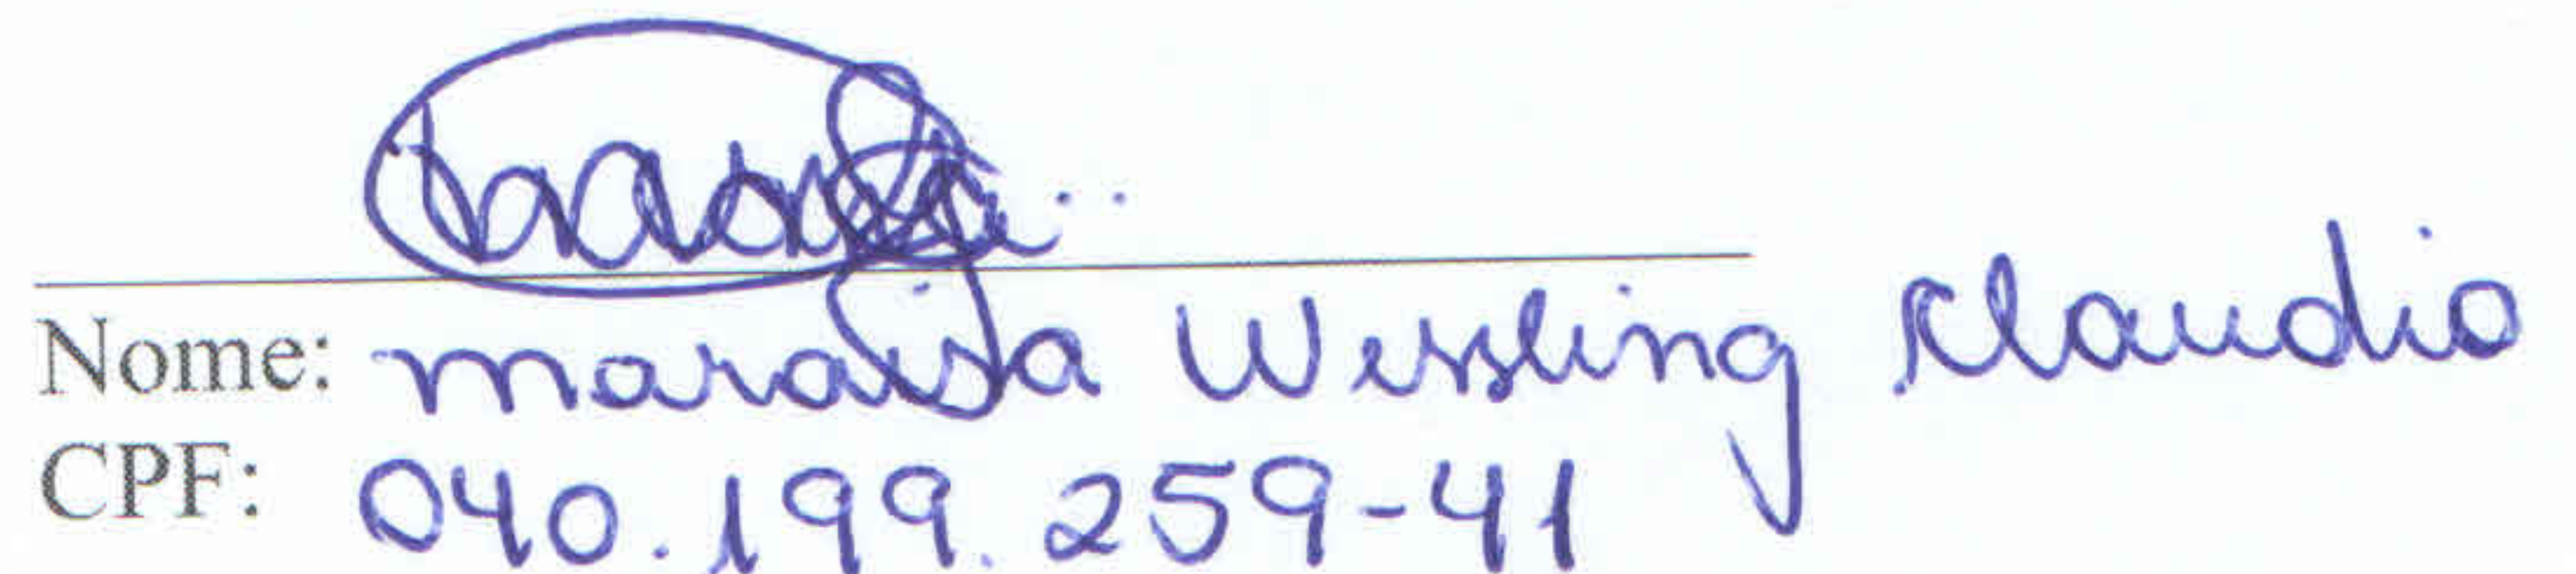 Nome: maraisa Wessling Claudio
CPF: 040.199.259-41